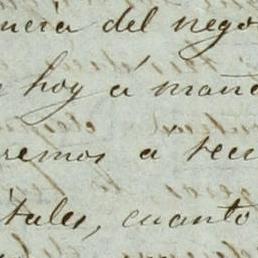 ncia del nego
hoy á maña
remos á reu
tales, cuanto